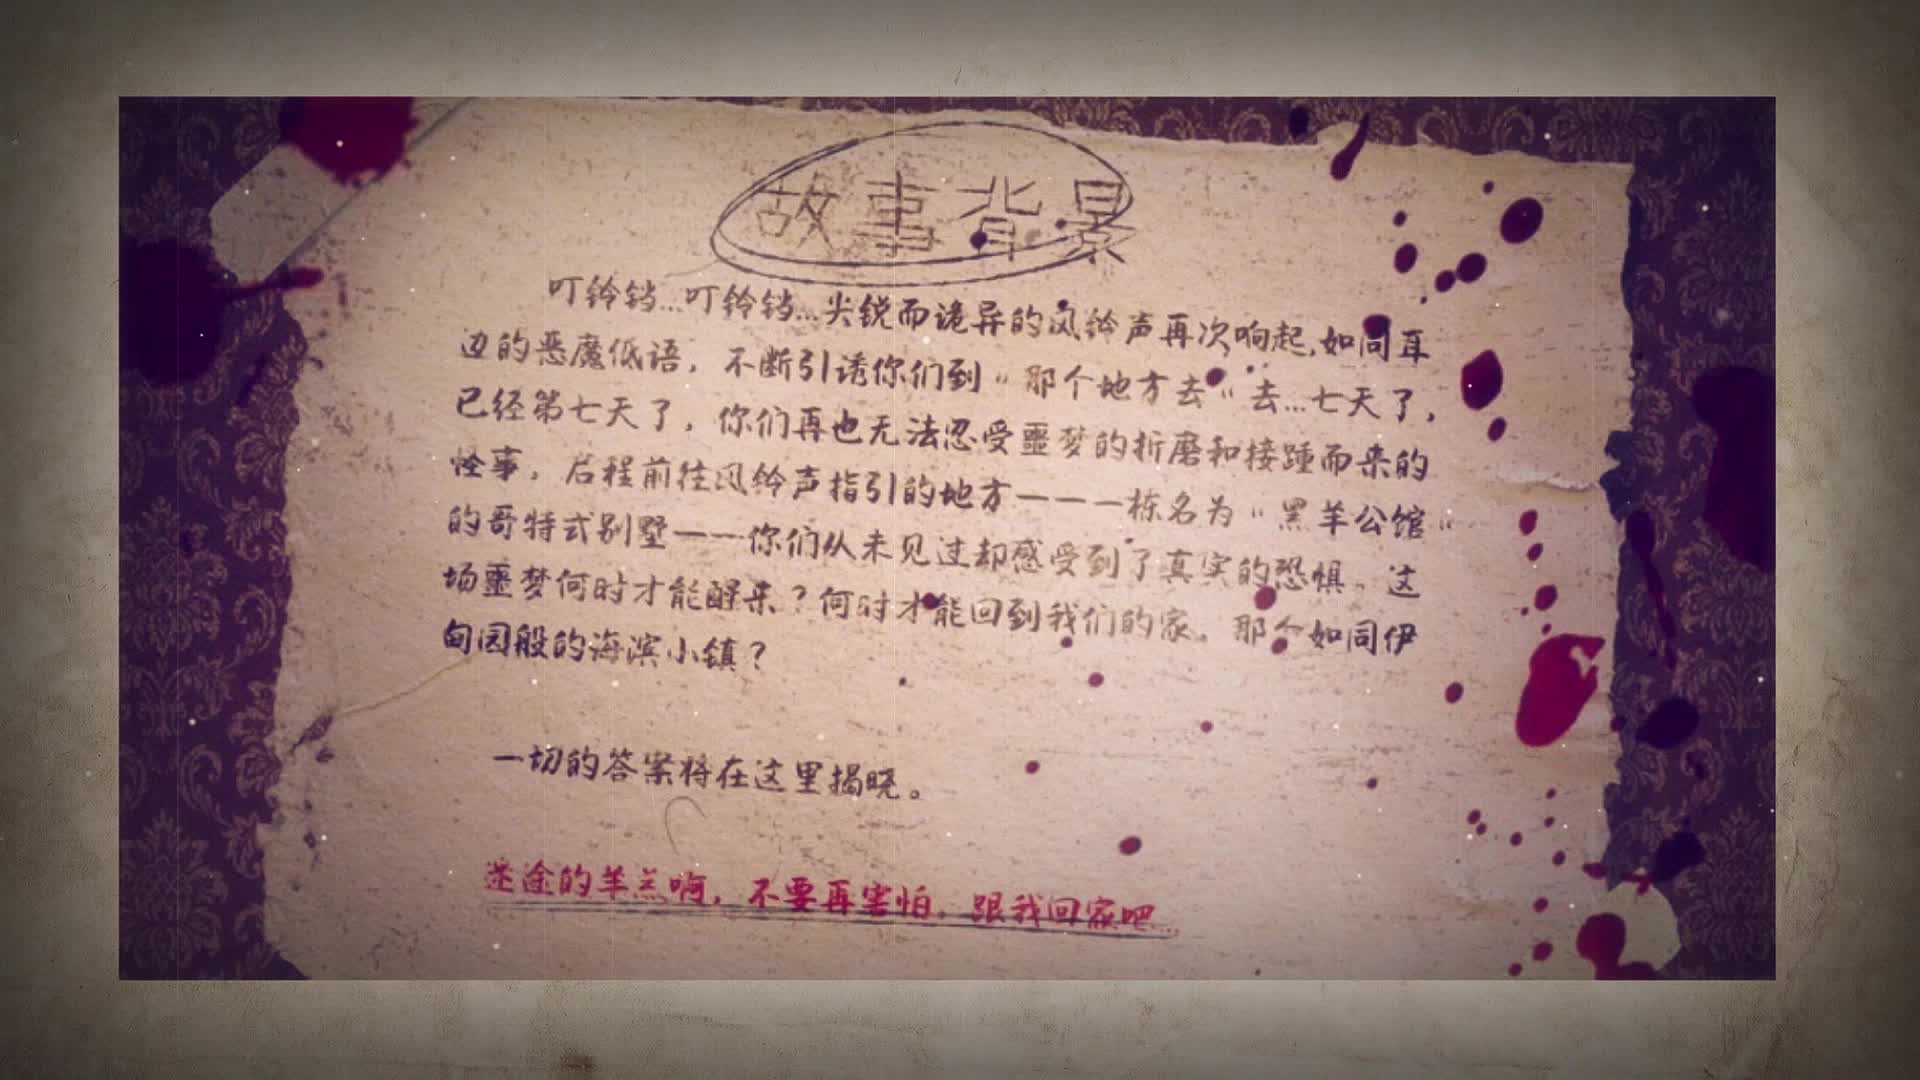 故事背景
叮铃铛...叮铃铛...尖锐而诡异的风铃声再次响起,如同耳
边的恶魔低语，不断引诱你们到“那个地方去“去...七天了，
已经第七天了，你们再也无法忍受噩梦的折磨和接踵而来的
怪事，启程前往风铃声指引的地方———一栋名为“黑羊公馆“
的哥特式别墅——你们从未见过却感受到了真实的恐惧。这
场噩梦何时才能醒来？何时才能回到我们的家，那个如同伊
甸园般的海滨小镇？
一切的答案将在这里揭晓。
迷途的羊羔啊，不要再害怕，跟我回家吧...